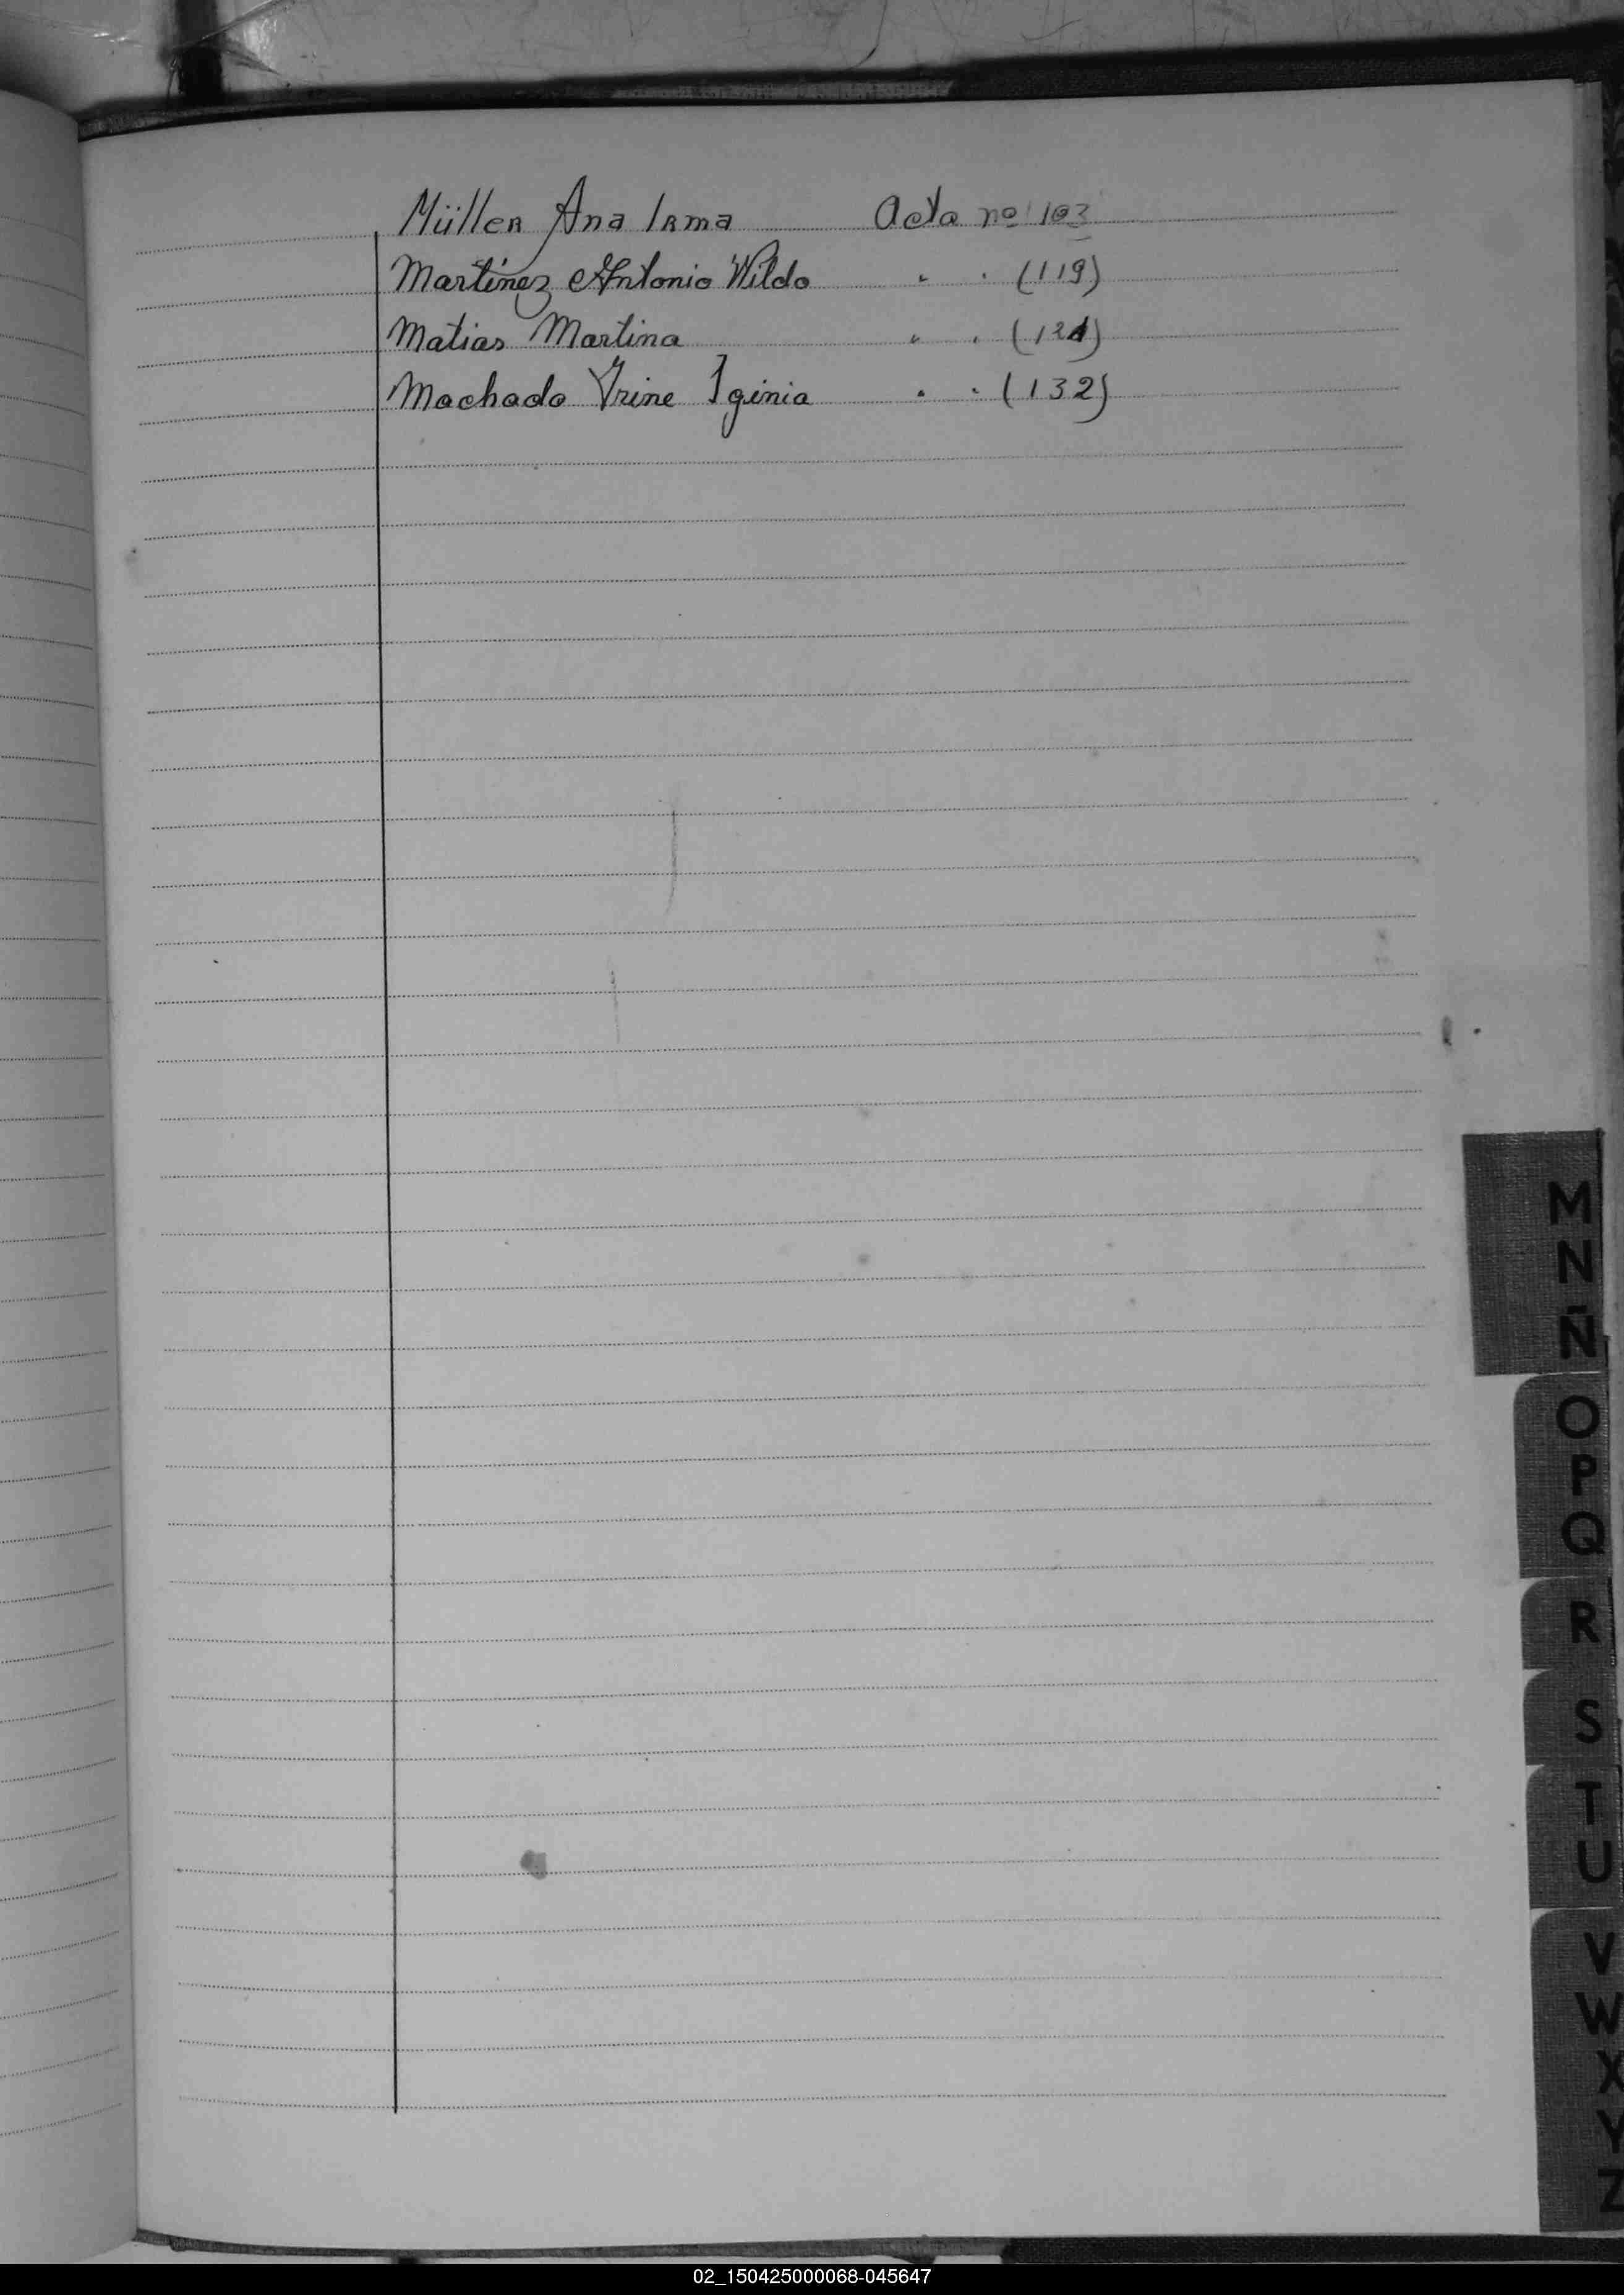 Müller Ana Irma Acta nº 103
Martinez Antonio Wildo " " (119)
Matias Martina " " (121)
Machado Yrine Iginia " " (132)
M
N
Ñ
O
P
Q
R
S
T
U
V
W
X
Y
Z
02_150425000068-045647